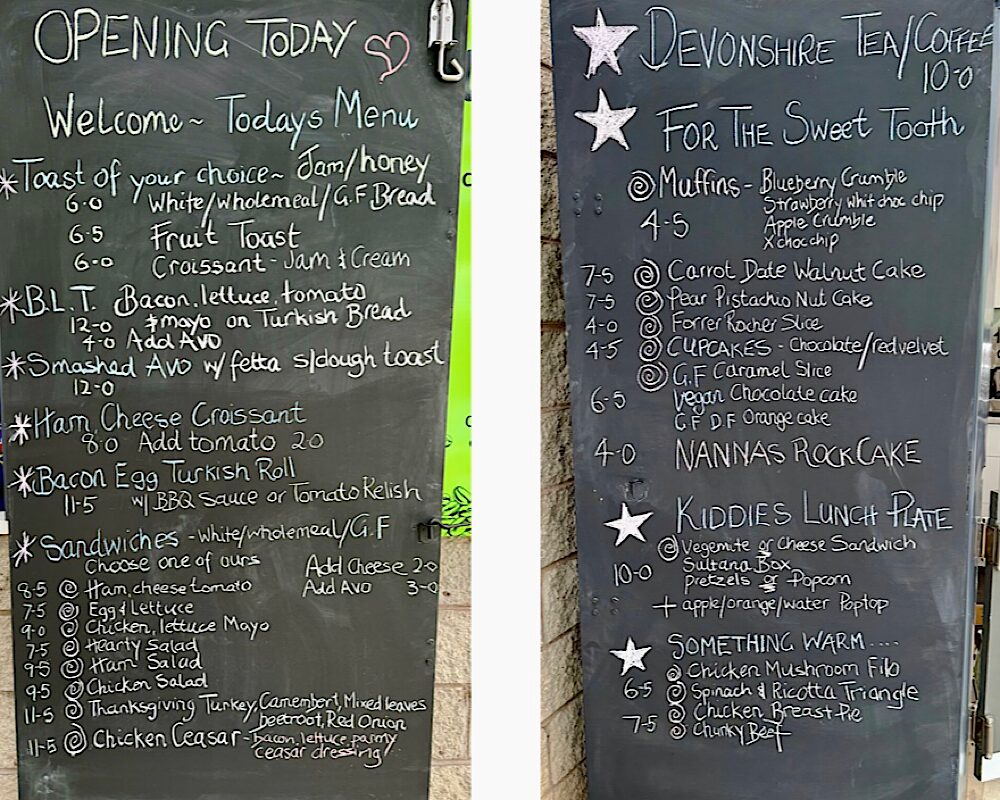 OPENING TODAY
Welcome~ Todays Menu
*Toast of your choice~ Jam/honey
6-0 White/wholemeal/G.F Bread
6-5 Fruit Toast
6-0 Croissant - Jam & Cream
*B.L.T. Bacon, lettuce, tomato
12-0 & mayo on Turkish Bread
4-0 Add Avo
*Smashed Avo w/fetta s/dough toast
12-0
*Ham Cheese Croissant
8-0 Add tomato 2-0
*Bacon Egg Turkish Roll
11-5 w/ BBQ Sauce or Tomato Relish
*Sandwiches - white/wholemeal/G.F
Choose one of ours Add Cheese 2-0
8-5 Ham, cheese tomato Add Avo 3-0
7-5 Egg & lettuce
9-0 Chicken, lettuce Mayo
7-5 Hearty Salad
9-5 Ham Salad
9-5 Chicken Salad
11-5 Thanksgiving Turkey, Camembert, Mixed leaves
beetroot, Red Onion
11-5 Chicken Ceasar - bacon, lettuce, parmy
ceasar dressing
DEVONSHIRE TEA/COFFEE
10-0
FOR THE SWEET TOOTH
Muffins - Blueberry Crumble
Strawberry whit choc chip
4-5 Apple Crumble
X choc chip
7-5 Carrot Date Walnut Cake
7-5 Pear Pistachio Nut Cake
4-0 Forrer Rocher Slice
4-5 CUPCAKES - Chocolate/red velvet
G.F Caramel Slice
6-5 Vegan Chocolate cake
G.F D F Orange cake
4-0 NANNAS ROCK CAKE
KIDDIES LUNCH PLATE
Vegemite or Cheese Sandwich
10-0 Sultana Box
pretzels or Popcorn
+ apple/orange/water Poptop
SOMETHING WARM....
Chicken Mushroom Filo
6-5 Spinach & Ricotta Triangle
7-5 Chicken Breast Pie
Chunky Beef